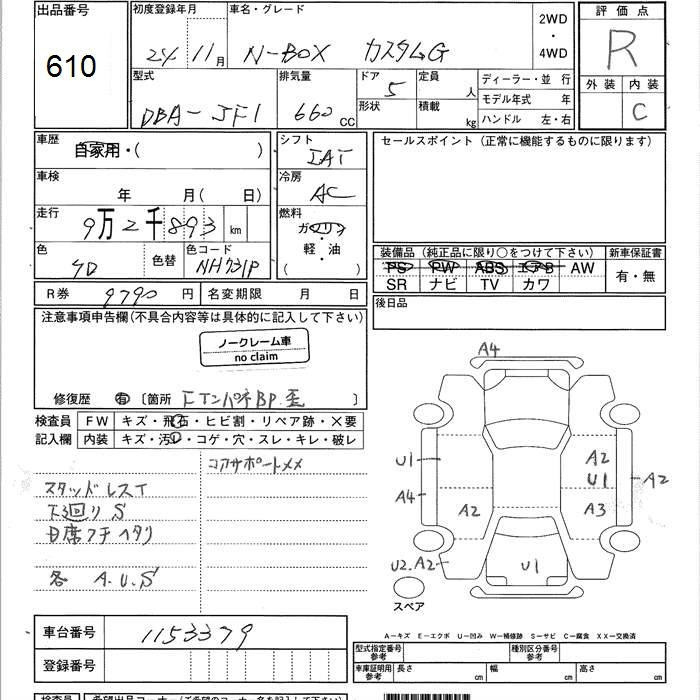 出品番号
610
初度登録年月
24 11月
車名・グレード
N-BOX カスタムG
2WD
・
4WD
評価点
R
外装 内装
C
型式
DBA-JF1
排気量
660 CC
ドア 5
形状
定員 人
積載 kg
ディーラー・並行
モデル年式 年
ハンドル 左・右
車歴
自家用・( )
車検
年 月( 日)
走行
9万2千893 km
色
色替
色コード
NH731P
シフト
IAT
冷房
AC
燃料
ガソリン
・
軽・油
( )
セールスポイント(正常に機能するものに限ります)
装備品(純正品に限り○をつけて下さい)
新車保証書
PS PW ABS エアB AW
SR ナビ TV カワ
有・無
後日品
R券 9790 円
名変期限 月 日
注意事項申告欄(不具合内容等は具体的に記入して下さい)
ノークレーム車
no claim
修復歴 有 〔箇所 〕
検査員
記入欄
FW キズ・飛石・ヒビ割・リペア跡・×要
内装 キズ・汚レ・コゲ・穴・スレ・キレ・破レ
コアサポートXX
スタッドレスT
下廻りS
D席フチヘタリ
各 A.U.S
A4
U1
A4
A2
A2
U1
A2
A3
U2.A2
U1
スペア
車台番号 1153379
登録番号
A-キズ E-エクボ U-凹み W-補修跡 S-サビ C-腐食 XX-交換済
型式指定番号
参考
種別区分番号
参考
車庫証明用
参考
長さ cm
幅 cm
高さ cm